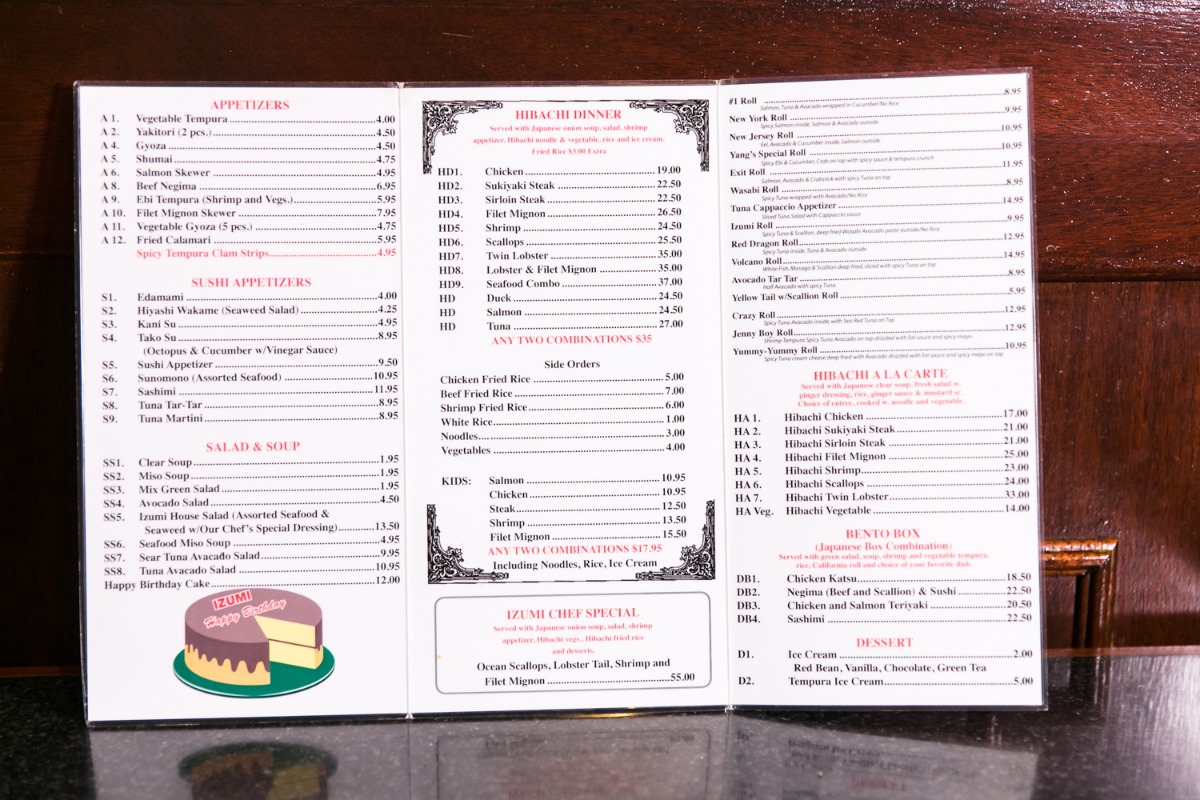 APPETIZERS
A 1. Vegetable Tempura 4.00
A 2. Yakitori (2 pcs.) 4.50
A 4. Gyoza 4.50
A 5. Shumai 4.75
A 6. Salmon Skewer 4.95
A 8. Beef Negima 6.95
A 9. Ebi Tempura (Shrimp and Vegs.) 5.95
A 10. Filet Mignon Skewer 7.95
A 11. Vegetable Gyoza (5 pcs.) 4.75
A 12. Fried Calamari 5.95
Spicy Tempura Clam Strips 4.95
SUSHI APPETIZERS
S1. Edamami 4.00
S2. Hiyashi Wakame (Seaweed Salad) 4.25
S3. Kani Su 4.95
S4. Tako Su 8.95
(Octopus & Cucumber w/Vinegar Sauce)
S5. Sushi Appetizer 9.50
S6. Sunomono (Assorted Seafood) 10.95
S7. Sashimi 11.95
S8. Tuna Tar-Tar 8.95
S9. Tuna Martini 8.95
SALAD & SOUP
SS1. Clear Soup 1.95
SS2. Miso Soup 1.95
SS3. Mix Green Salad 1.95
SS4. Avocado Salad 4.50
SS5. Izumi House Salad (Assorted Seafood &
Seaweed w/Our Chef's Special Dressing) 13.50
SS6. Seafood Miso Soup 4.95
SS7. Sear Tuna Avacado Salad 9.95
SS8. Tuna Avacado Salad 10.95
Happy Birthday Cake 12.00
IZUMI
Happy Birthday
HIBACHI DINNER
Served with Japanese onion soup, salad, shrimp
appetizer, Hibachi noodle & vegetable, rice and ice cream.
Fried Rice $3.00 Extra
HD1. Chicken 19.00
HD2. Sukiyaki Steak 22.50
HD3. Sirloin Steak 22.50
HD4. Filet Mignon 26.50
HD5. Shrimp 24.50
HD6. Scallops 25.50
HD7. Twin Lobster 35.00
HD8. Lobster & Filet Mignon 35.00
HD9. Seafood Combo 37.00
HD Duck 24.50
HD Salmon 24.50
HD Tuna 27.00
ANY TWO COMBINATIONS $35
Side Orders
Chicken Fried Rice 5.00
Beef Fried Rice 7.00
Shrimp Fried Rice 6.00
White Rice 1.00
Noodles 3.00
Vegetables 4.00
KIDS: Salmon 10.95
Chicken 10.95
Steak 12.50
Shrimp 13.50
Filet Mignon 15.50
ANY TWO COMBINATIONS $17.95
Including Noodles, Rice, Ice Cream
IZUMI CHEF SPECIAL
Served with Japanese onion soup, salad, shrimp
appetizer, Hibachi vegs., Hibachi fried rice
and desserts.
Ocean Scallops, Lobster Tail, Shrimp and
Filet Mignon 55.00
#1 Roll 8.95
Salmon, Tuna & Avocado wrapped in Cucumber/No Rice
New York Roll 9.95
Spicy Salmon inside, Salmon & Avocado outside
New Jersey Roll 10.95
Eel, Avocado & Cucumber inside, Salmon outside
Yang's Special Roll 10.95
Spicy Ebi & Cucumber, Crab on top with spicy sauce & tempura crunch
Exit Roll 11.95
Salmon, Avocado & Crabstick with spicy Tuna on top
Wasabi Roll 8.95
Spicy Tuna wrapped with Avocado/No Rice
Tuna Cappaccio Appetizer 14.95
Sliced Tuna Salad with Cappaccio sauce
Izumi Roll 9.95
Spicy Tuna & Scallion, deep fried Wasabi Avocado paste outside/No Rice
Red Dragon Roll 12.95
Spicy Tuna inside, Tuna & Avocado outside
Volcano Roll 14.95
White Fish, Masago & Scallion deep fried, sliced with spicy Tuna on top
Avocado Tar Tar 8.95
Half Avocado with spicy Tuna
Yellow Tail w/Scallion Roll 5.95
Crazy Roll 12.95
Spicy Tuna Avocado inside, with Sea Red Tuna on Top
Jenny Boy Roll 12.95
Shrimp Tempura Spicy Tuna Avocado on top drizzled with Eel sauce and spicy mayo
Yummy-Yummy Roll 10.95
Spicy Tuna cream cheese deep fried with Avocado drizzled with Eel sauce and spicy mayo on top
HIBACHI A LA CARTE
Served with Japanese clear soup, fresh salad w.
ginger dressing, rice, ginger sauce & mustard sc.
Choice of entree, cooked w. noodle and vegetable.
HA 1. Hibachi Chicken 17.00
HA 2. Hibachi Sukiyaki Steak 21.00
HA 3. Hibachi Sirloin Steak 21.00
HA 4. Hibachi Filet Mignon 25.00
HA 5. Hibachi Shrimp 23.00
HA 6. Hibachi Scallops 24.00
HA 7. Hibachi Twin Lobster 33.00
HA Veg. Hibachi Vegetable 14.00
BENTO BOX
(Japanese Box Combination)
Served with green salad, soup, shrimp and vegetable tempura,
rice, California roll and choice of your favorite dish.
DB1. Chicken Katsu 18.50
DB2. Negima (Beef and Scallion) & Sushi 22.50
DB3. Chicken and Salmon Teriyaki 20.50
DB4. Sashimi 22.50
DESSERT
D1. Ice Cream 2.00
Red Bean, Vanilla, Chocolate, Green Tea
D2. Tempura Ice Cream 5.00